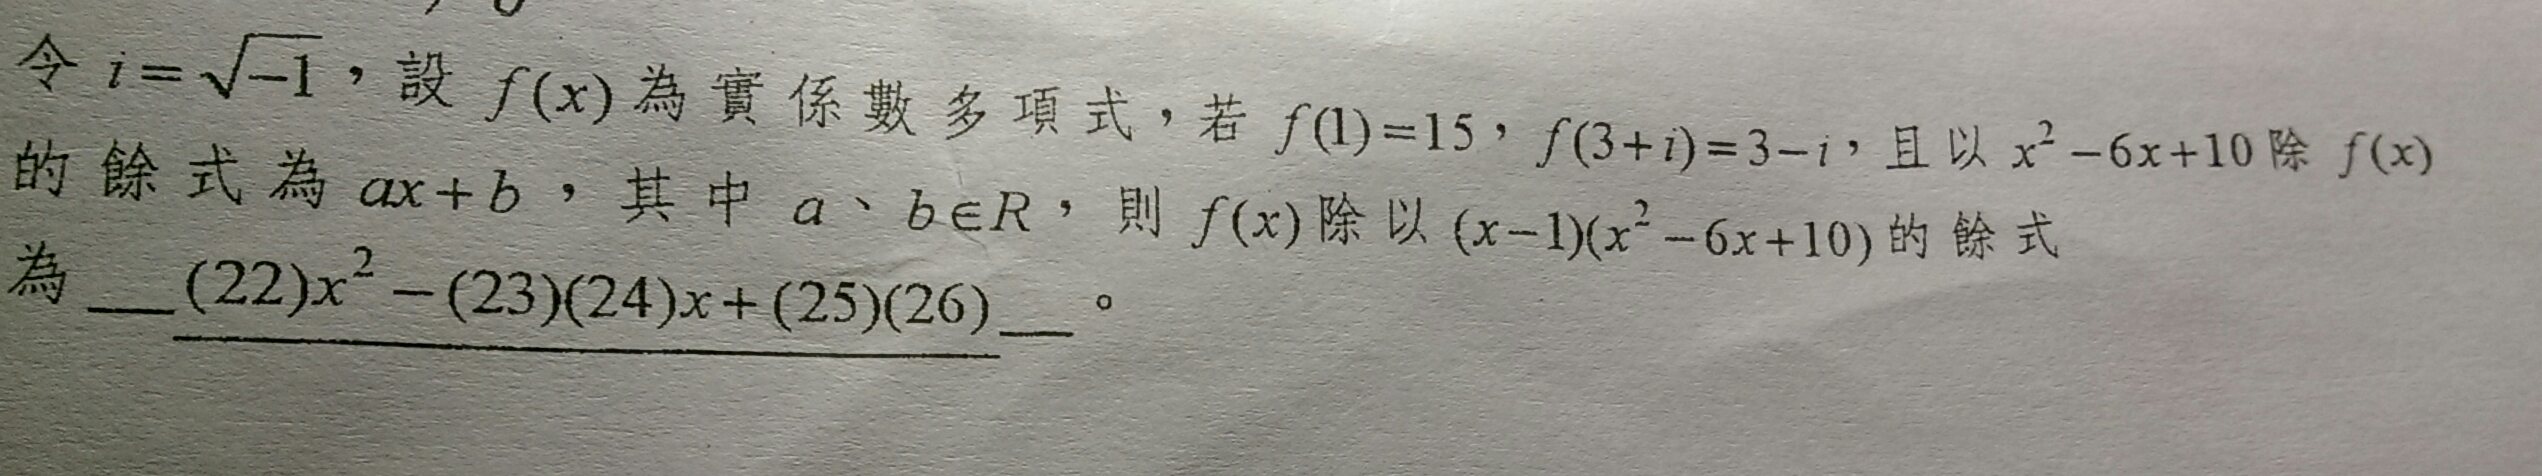 令 i=√-1,設 f(x) 為實係數多項式,若 f(1)=15,f(3+i)=3-i,且以 x²-6x+10 除 f(x)
的餘式為 ax+b,其中 a、b∈R,則 f(x) 除以 (x-1)(x²-6x+10) 的餘式
為 __(22)x²-(23)(24)x+(25)(26)__。